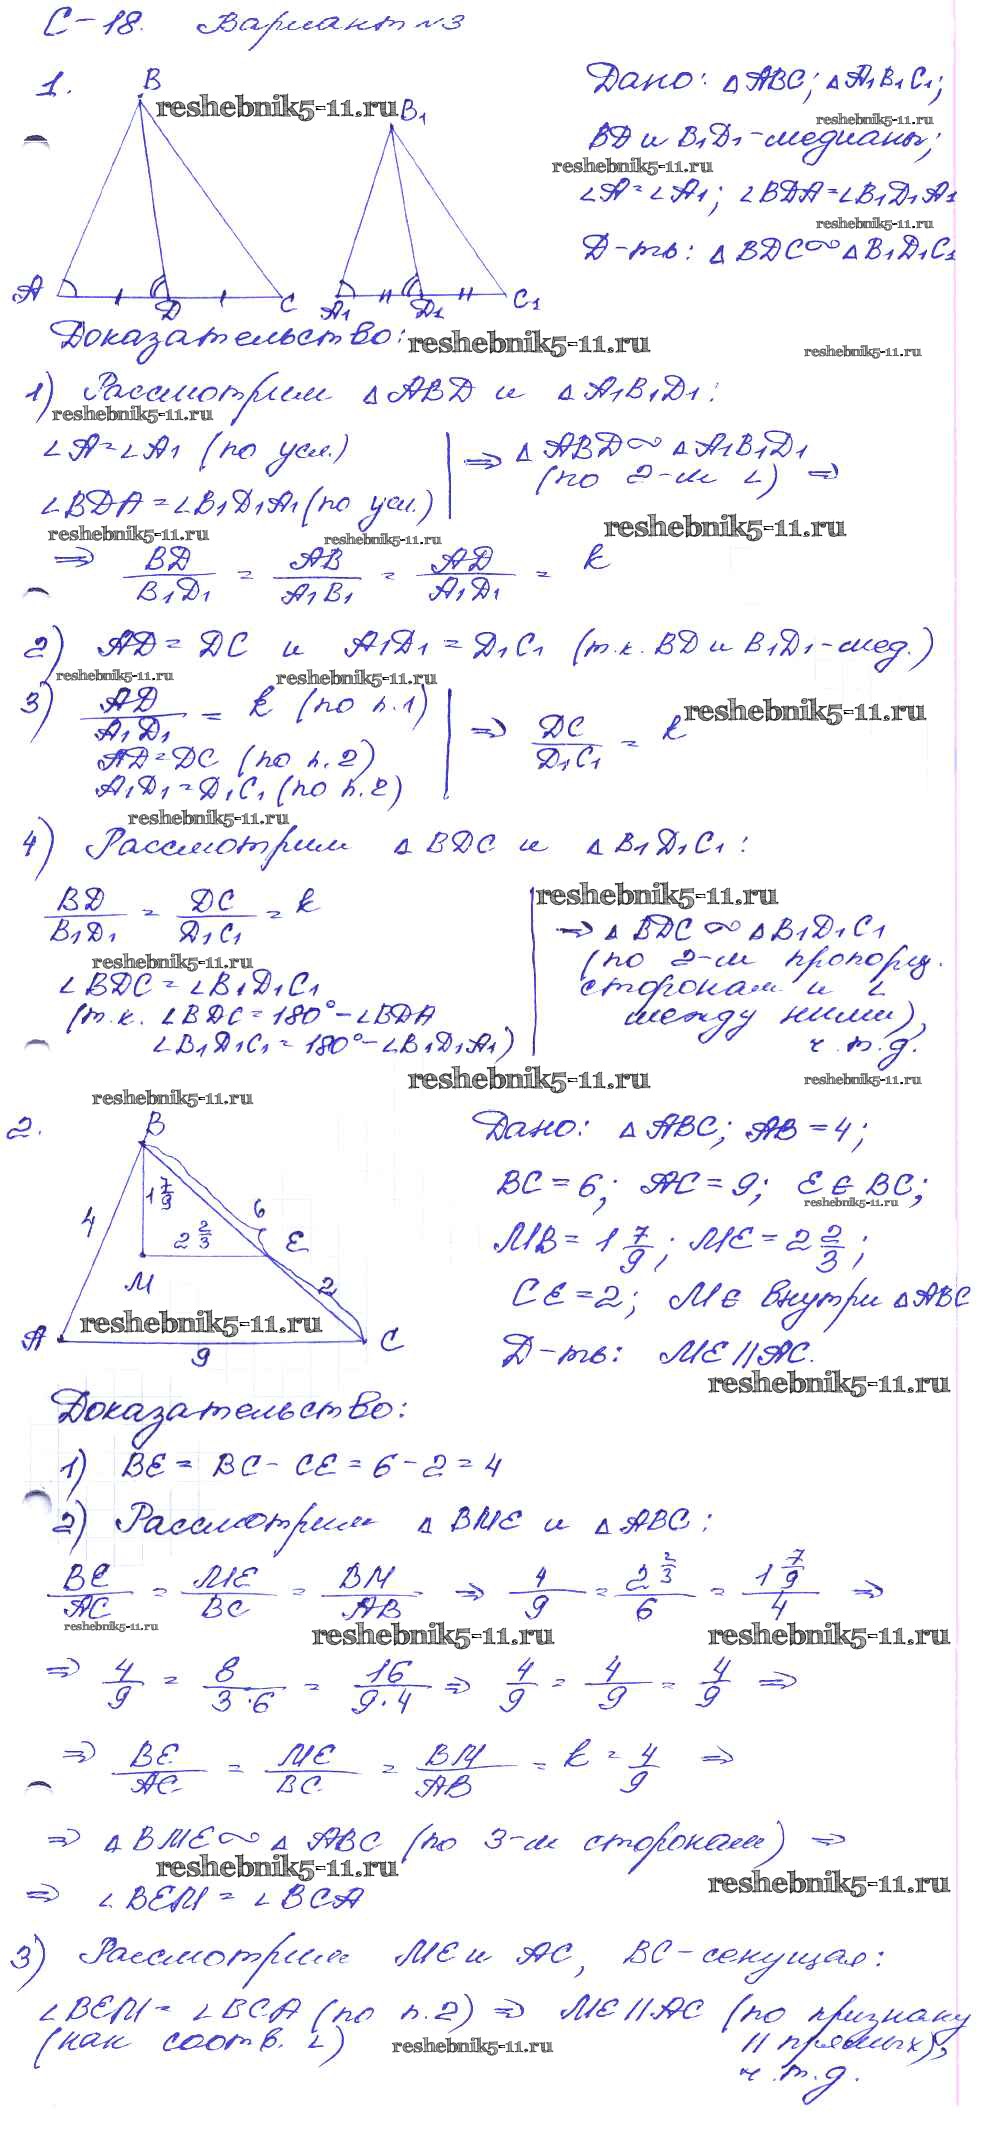 С-18. Вариант №3
1.
B
reshebnik5-11.ru
B₁
A
D
C
A₁
D₁
C₁
Дано: △ABC; △A₁B₁C₁;
reshebnik5-11.ru
BD и B₁D₁-медианы;
reshebnik5-11.ru
∠A=∠A₁; ∠BDA=∠B₁D₁A₁
reshebnik5-11.ru
Д-ть: △BDC∾△B₁D₁C₁
Доказательство:
reshebnik5-11.ru
reshebnik5-11.ru
1) Рассмотрим △ABD и △A₁B₁D₁:
reshebnik5-11.ru
∠A=∠A₁ (по усл.)
∠BDA=∠B₁D₁A₁(по усл.)
⇒ △ABD∾△A₁B₁D₁
(по 2-м ∠) ⇒
reshebnik5-11.ru
reshebnik5-11.ru
reshebnik5-11.ru
⇒ BD/B₁D₁ = AB/A₁B₁ = AD/A₁D₁ = k
2) AD=DC и A₁D₁=D₁C₁ (т.к. BD и B₁D₁-мед.)
reshebnik5-11.ru
reshebnik5-11.ru
3) AD/A₁D₁ = k (по п.1)
AD=DC (по п.2)
A₁D₁=D₁C₁ (по п.2)
⇒ DC/D₁C₁ = k
reshebnik5-11.ru
reshebnik5-11.ru
4) Рассмотрим △BDC и △B₁D₁C₁:
BD/B₁D₁ = DC/D₁C₁ = k
reshebnik5-11.ru
∠BDC=∠B₁D₁C₁
(т.к. ∠BDC=180°-∠BDA
∠B₁D₁C₁=180°-∠B₁D₁A₁)
reshebnik5-11.ru
⇒ △BDC∾△B₁D₁C₁
(по 2-м пропорц.
сторонам и ∠
между ними),
ч.т.д.
reshebnik5-11.ru
reshebnik5-11.ru
reshebnik5-11.ru
2.
B
4
1 7/9
6
2 2/3
E
M
2
A
reshebnik5-11.ru
C
9
Дано: △ABC; AB=4;
BC=6; AC=9; E∈BC;
reshebnik5-11.ru
MB=1 7/9; ME=2 2/3;
CE=2; M∈ внутри △ABC
Д-ть: ME||AC.
reshebnik5-11.ru
Доказательство:
1) BE=BC-CE=6-2=4
2) Рассмотрим △BME и △ABC:
BE/AC = ME/BC = BM/AB ⇒ 4/9 = 2 2/3/6 = 1 7/9/4 ⇒
reshebnik5-11.ru
reshebnik5-11.ru
reshebnik5-11.ru
⇒ 4/9 = 8/3·6 = 16/9·4 ⇒ 4/9 = 4/9 = 4/9 ⇒
⇒ BE/AC = ME/BC = BM/AB = k = 4/9 ⇒
⇒ △BME∾△ABC (по 3-м сторонам) ⇒
reshebnik5-11.ru
reshebnik5-11.ru
⇒ ∠BEM=∠BCA
3) Рассмотрим ME и AC, BC-секущая:
∠BEM=∠BCA (по п.2) ⇒ ME||AC (по признаку
(как соотв. ∠)
reshebnik5-11.ru
|| прямых),
ч.т.д.